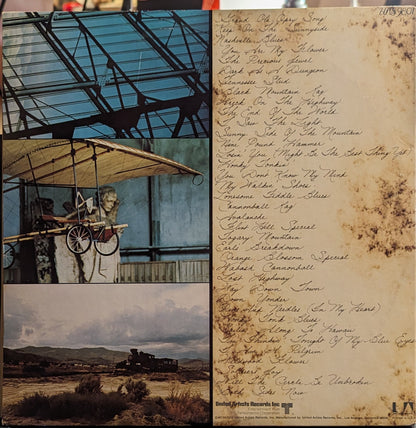 Grand Ole Opry Song
Keep On The Sunnyside
Nashville Blues
You Are My Flower
The Precious Jewel
Dark As A Dungeon
Tennessee Stud
Black Mountain Rag
Wreck On The Highway
The End Of The World
I Saw The Light
Sunny Side Of The Mountain
Nine Pound Hammer
Losin' You (Might Be The Best Thing Yet)
Honky Tonkin'
You Don't Know My Mind
My Walkin' Shoes
Lonesome Fiddle Blues
Cannonball Rag
Avalanche
Flint Hill Special
Togary Mountain
Earl's Breakdown
Orange Blossom Special
Wabash Cannonball
Lost Highway
Way Down Town
Down Yonder
Pins And Needles (In My Heart)
Honky Tonk Blues
Sailin' Along To Hawaii
I'm Thinking Tonight Of My Blue Eyes
I Am A Pilgrim
Wildwood Flower
Soldier's Joy
Will The Circle Be Unbroken
Both Sides Now
United Artists Records Inc
UA